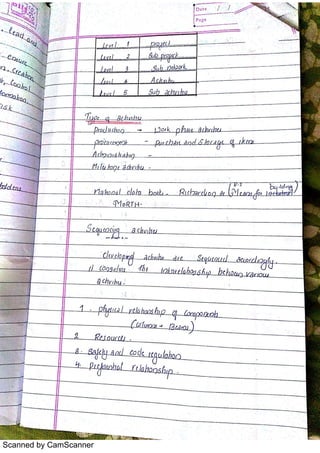 Date / /
Page
Level 1 project
Level 2 Sub project
Level 3 Sub network
Level 4 Activities
Level 5 Sub activities
Type of activities
production → Work phase activities
procurement - purchase and storage of items
Administrative -
Milestone activities -
National data book. Richardson &
MORTH-
Sequencing activities
developed activities are sequenced accordingly.
it considers the interrelationship between various
activities.
1. physical relationship of components
(column → Beam)
2 Resources.
3. Safety and code regulation
4. Preferential relationship.
lead and
ensure
Creation
Control
Risk
Scanned by CamScanner